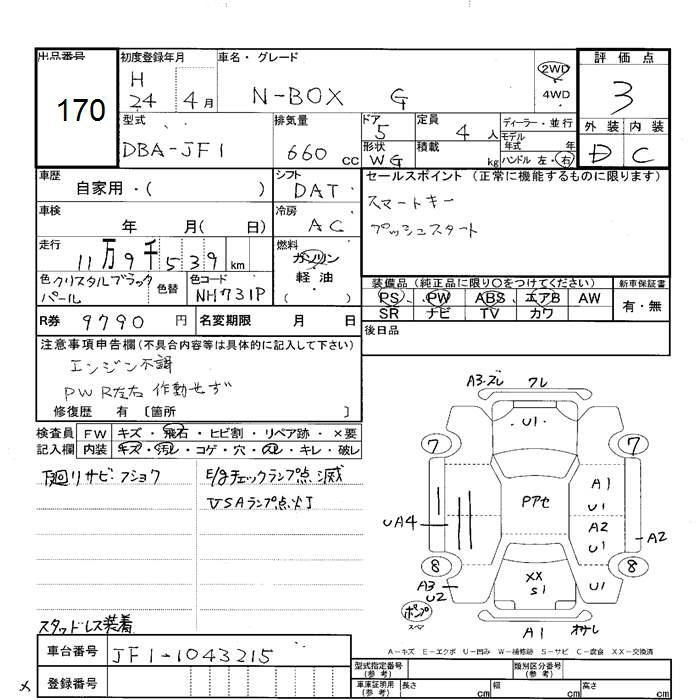 出品番号 初度登録年月 車名・グレード 評価点
170 H 24 4月 N-BOX G 2WD 4WD 3
型式 排気量 ドア 定員 ディーラー・並行 外装 内装
DBA-JF1 660 cc 5 4 人 モデル年式 年 D C
形状 WG 積載 kg ハンドル 左・右
車歴 シフト セールスポイント (正常に機能するものに限ります)
自家用・( ) DAT スマートキー
車検 冷房 プッシュスタート
年 月( 日) AC
走行 燃料
11万9千539km ガソリン
軽油
色 クリスタルブラックパール 色替 色コード NH731P ・( )
装備品 (純正品に限り○をつけてください) 新車保証書
PS PW ABS エアB AW 有・無
SR ナビ TV カワ
R券 9790 円 名変期限 月 日 後日品
注意事項申告欄(不具合内容等は具体的に記入して下さい)
エンジン不調
PW R左右 作動せず
修復歴 有 〔箇所 〕
検査員 FW キズ・飛石・ヒビ割・リペア跡・×要
記入欄 内装 キズ・汚レ・コゲ・穴・スレ・キレ・破レ
下廻リサビ・フショク E/gチェックランプ点滅
VSAランプ点灯
A3・ズレ ワレ
U1
7 7
A1
U1
Pアセ
UA4 A2 A2
U1
8 8
A3 XX U1
U2 S1
ポンプ
スペア
A1 オサレ
スタッドレス装着
A-キズ E-エクボ U-凹み W-補修跡 S-サビ C-腐食 XX-交換済
車台番号 JF1-1043215
型式指定番号(参考) 類別区分番号(参考)
登録番号
車庫証明用(参考) 長さ cm 幅 cm 高さ cm